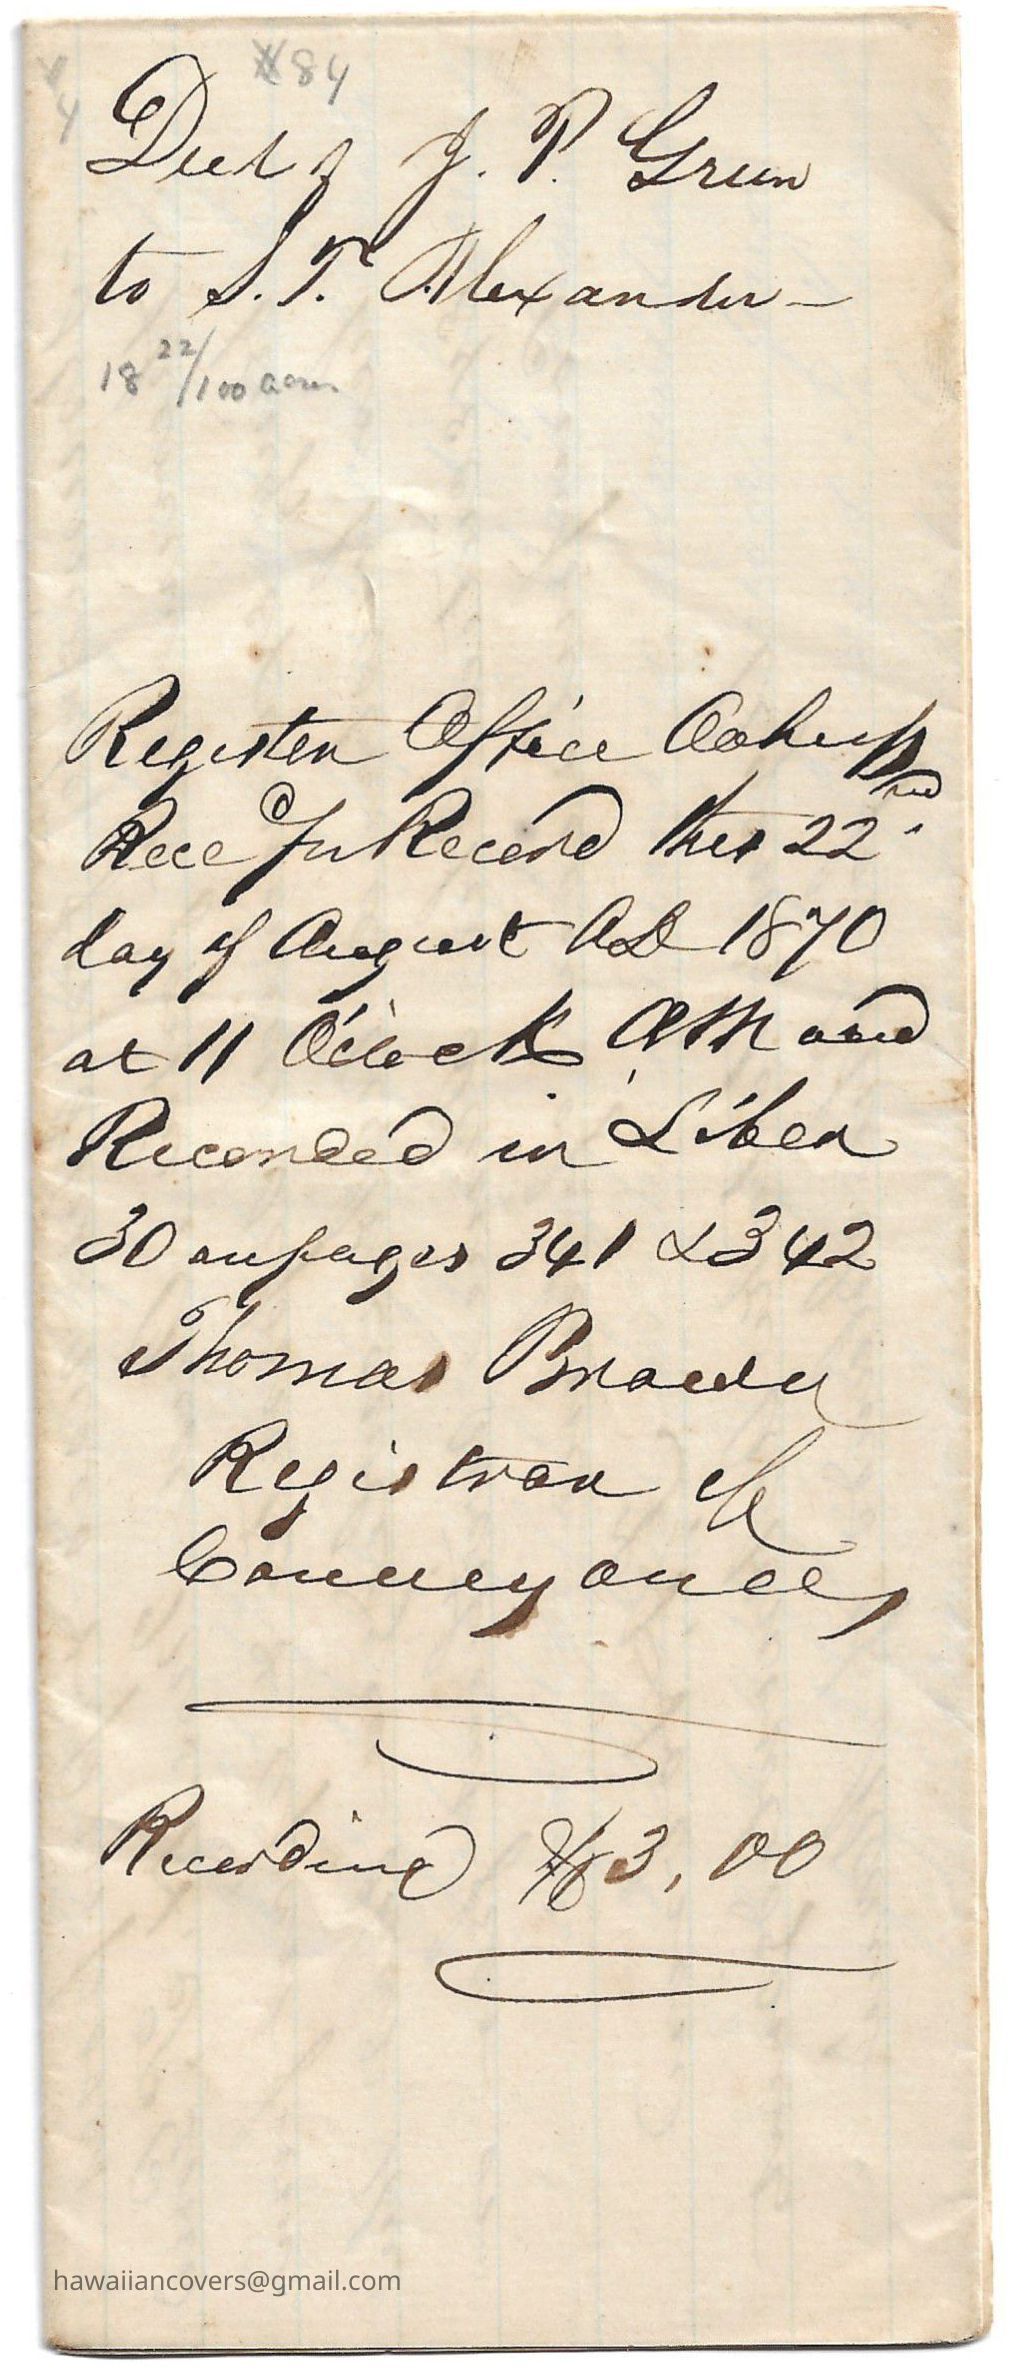 #84
4
Deed of J. P. Green
to S. T. Alexander
18 22/100 acres
Register Office Oahu ss
Rece for Record this 22nd
day of August AD 1870
at 11 O'clock AM and
Recorded in Liber
30 on pages 341 & 342
Thomas Brown
Registrar of
Conveyances
Recording $3,00
hawaiiancovers@gmail.com